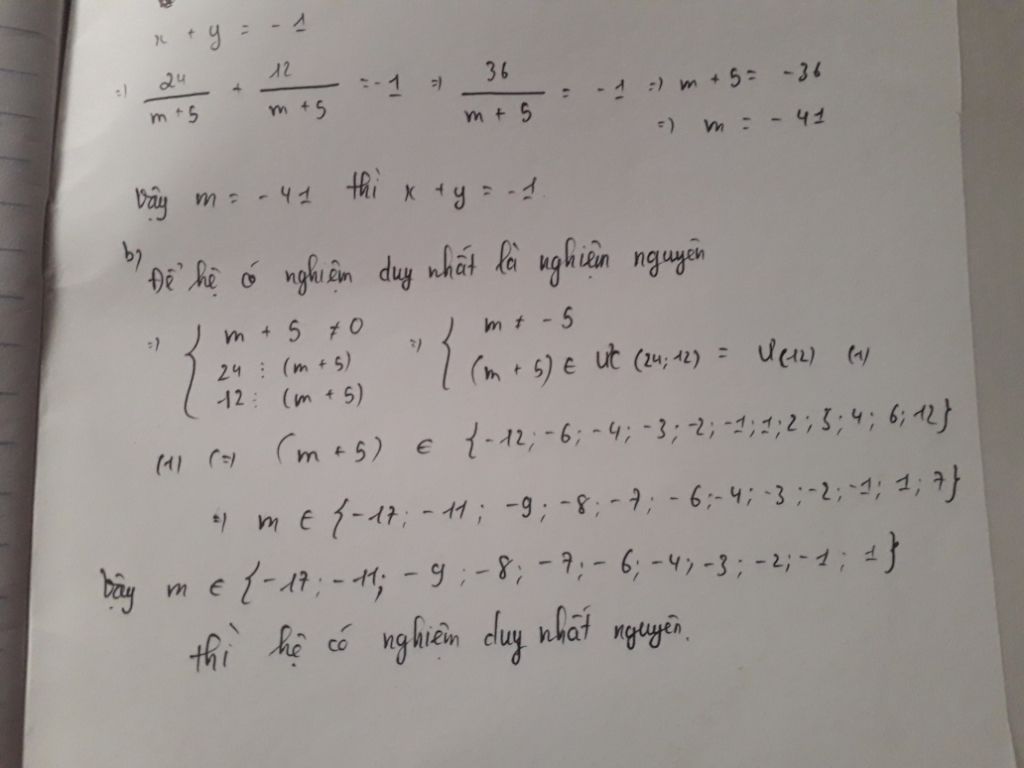 x + y = -1
=) 24/(m+5) + 12/(m+5) = -1 =) 36/(m+5) = -1 =) m + 5 = -36
=) m = -41
Vậy m = -41 thì x + y = -1.
b) Để hệ có nghiệm duy nhất là nghiệm nguyên
=) { m + 5 ≠ 0 =) { m ≠ -5
24 ⋮ (m+5) (m+5) ∈ ƯC (24;12) = Ư(12) (1)
12 ⋮ (m+5)
(1) (=) (m+5) ∈ {-12; -6; -4; -3; -2; -1; 1; 2; 3; 4; 6; 12}
=) m ∈ {-17; -11; -9; -8; -7; -6; -4; -3; -2; -1; 1; 7}
Vậy m ∈ {-17; -11; -9; -8; -7; -6; -4; -3; -2; -1; 1}
thì hệ có nghiệm duy nhất nguyên.